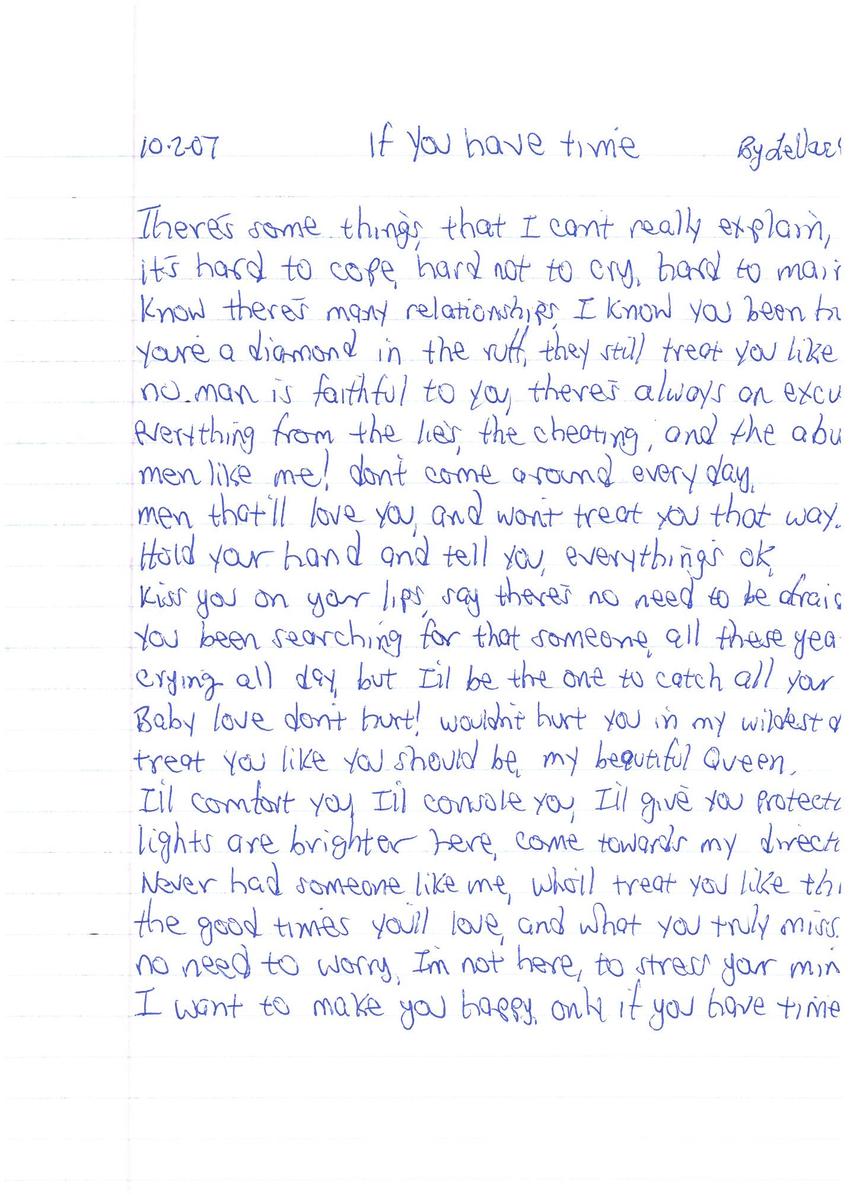 10-2-07 If you have time By
There's some things, that I can't really explain,
it's hard to cope, hard not to cry, hard to
Know there's many relationships, I know you been
you're a diamond in the ruff, they still treat you like
no man is faithful to you, there's always an
everything from the lies, the cheating, and the
men like me! don't come around every day.
men that'll love you, and won't treat you that way.
Hold your hand and tell you, everything's ok,
Kiss you on your lips, say there's no need to be
You been searching for that someone, all these
crying all day, but I'll be the one to catch all your
Baby love don't hurt! wouldn't hurt you in my wildest
treat you like you should be, my beautiful Queen.
I'll comfort you, I'll console you, I'll give you
lights are brighter here, come towards my
Never had someone like me, who'll treat you like
the good times you'll love, and what you truly miss.
no need to worry, I'm not here, to stress your
I want to make you happy, only if you have time